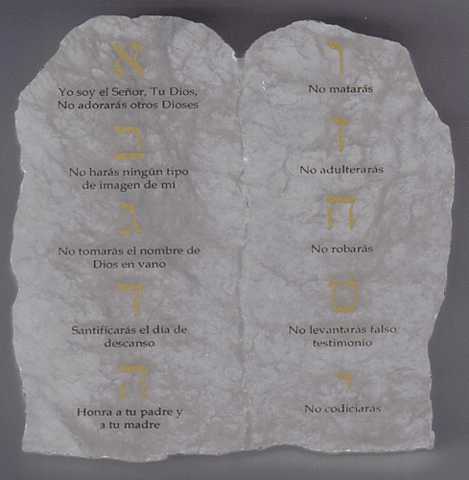 א
Yo soy el Señor, Tu Dios,
No adorarás otros Dioses
ב
No harás ningún tipo
de imagen de mí
ג
No tomarás el nombre de
Dios en vano
ד
Santificarás el día de
descanso
ה
Honra a tu padre y
a tu madre
ו
No matarás
ז
No adulterarás
ח
No robarás
ט
No levantarás falso
testimonio
י
No codiciarás